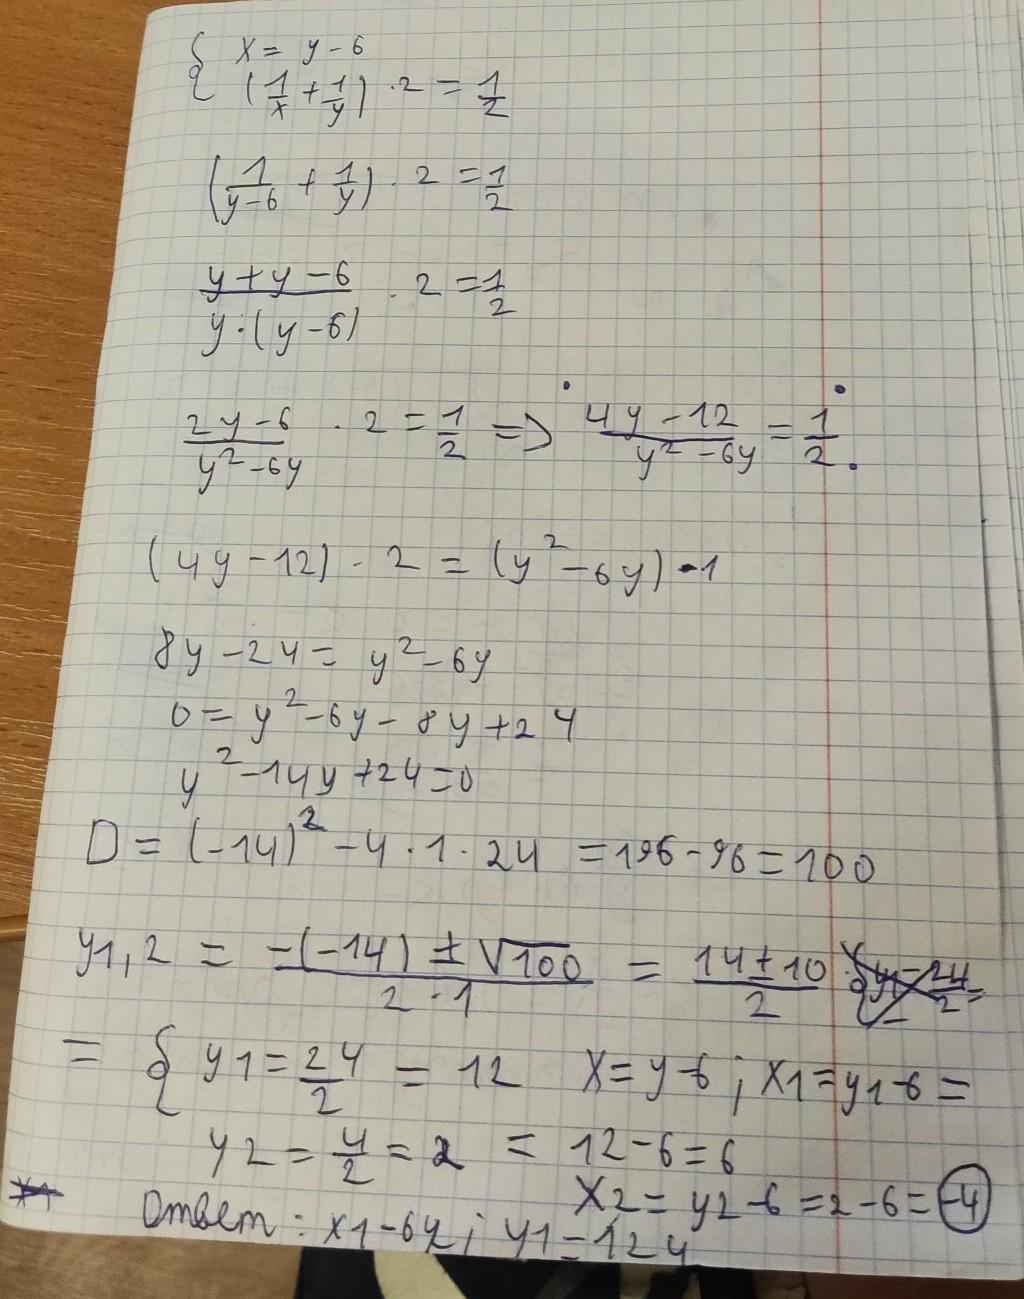 { x = y - 6
(1/x + 1/y) · 2 = 1/2
(1/(y-6) + 1/y) · 2 = 1/2
(y + y - 6)/(y · (y - 6)) · 2 = 1/2
(2y - 6)/(y² - 6y) · 2 = 1/2 => (4y - 12)/(y² - 6y) = 1/2
(4y - 12) · 2 = (y² - 6y) · 1
8y - 24 = y² - 6y
0 = y² - 6y - 8y + 24
y² - 14y + 24 = 0
D = (-14)² - 4 · 1 · 24 = 196 - 96 = 100
y1,2 = (-(-14) ± √100)/(2 · 1) = (14 ± 10)/2
= { y1 = 24/2 = 12 x = y - 6 ; x1 = y1 - 6 =
y2 = 4/2 = 2 = 12 - 6 = 6
x2 = y2 - 6 = 2 - 6 = -4
Ответ: x1 - 6ч ; y1 = 12ч